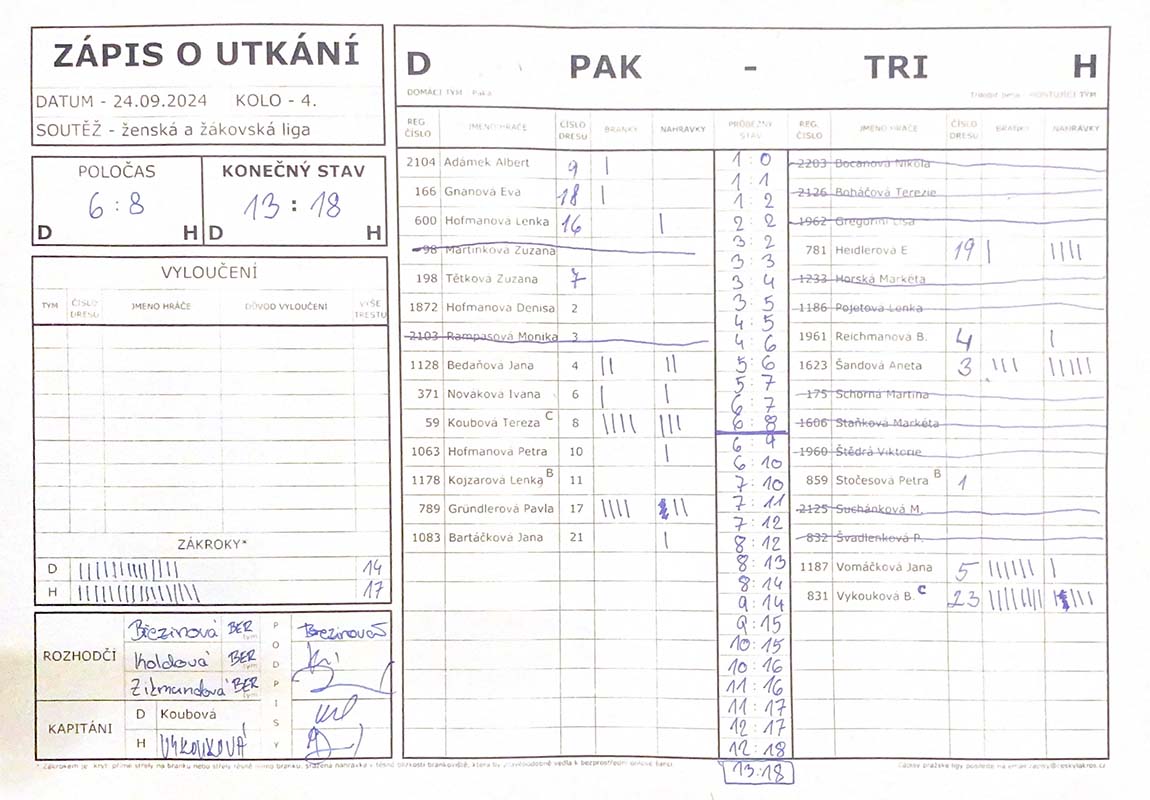 ZÁPIS O UTKÁNÍ
DATUM - 24.09.2024 KOLO - 4.
SOUTĚŽ - ženská a žákovská liga
POLOČAS
6 : 8
D H
KONEČNÝ STAV
13 : 18
D H
VYLOUČENÍ
TYM ČÍSLO DRESU JMENO HRÁČE DŮVOD VYLOUČENÍ VÝŠE TRESTU
ZÁKROKY*
D 14
H 17
ROZHODČÍ
Březinová BER
Koldová BER
Zikmundová BER
PODPISY
Březinová
KAPITÁNI
D Koubová
H VYKOUKOVÁ
D PAK - TRI H
DOMÁCÍ TÝM
HOSTUJÍCÍ TÝM
REG. ČÍSLO JMENO HRÁČE ČÍSLO DRESU BRANKY NAHRÁVKY
2104 Adámek Albert 9 |
166 Gnanová Eva 18 |
600 Hofmanova Lenka 16 |
98 Martinková Zuzana
198 Tětková Zuzana 7
1872 Hofmanova Denisa 2
2103 Rampasová Monika 3
1128 Bedaňová Jana 4 || ||
371 Novaková Ivana 6 | |
59 Koubová Tereza C 8 |||| |||
1063 Hofmanova Petra 10 |
1178 Kojzarová Lenka B 11
789 Gründlerová Pavla 17 |||| ||
1083 Bartáčková Jana 21 |
PRŮBĚŽNÝ STAV
1 : 0
1 : 1
1 : 2
2 : 2
3 : 2
3 : 3
3 : 4
3 : 5
4 : 5
4 : 6
5 : 6
5 : 7
6 : 7
6 : 8
6 : 9
6 : 10
7 : 10
7 : 11
7 : 12
8 : 12
8 : 13
8 : 14
9 : 14
9 : 15
10 : 15
10 : 16
11 : 16
11 : 17
12 : 17
12 : 18
13 : 18
REG. ČÍSLO JMENO HRÁČE ČÍSLO DRESU BRANKY NAHRÁVKY
2203 Bocanová Nikola
2126 Boháčová Terezie
1962 Gregorini Lisa
781 Heidlerová E 19 | ||||
1233 Horská Markéta
1186 Pojetová Lenka
1961 Reichmanová B. 4 |
1623 Šandová Aneta 3 ||| |||||
175 Schorná Martina
1606 Staňková Markéta
1960 Štědrá Viktorie
859 Stočesová Petra B 1
2125 Suchánková M.
832 Švadlenková P.
1187 Vomáčková Jana 5 |||||| |
831 Vykouková B. C 23